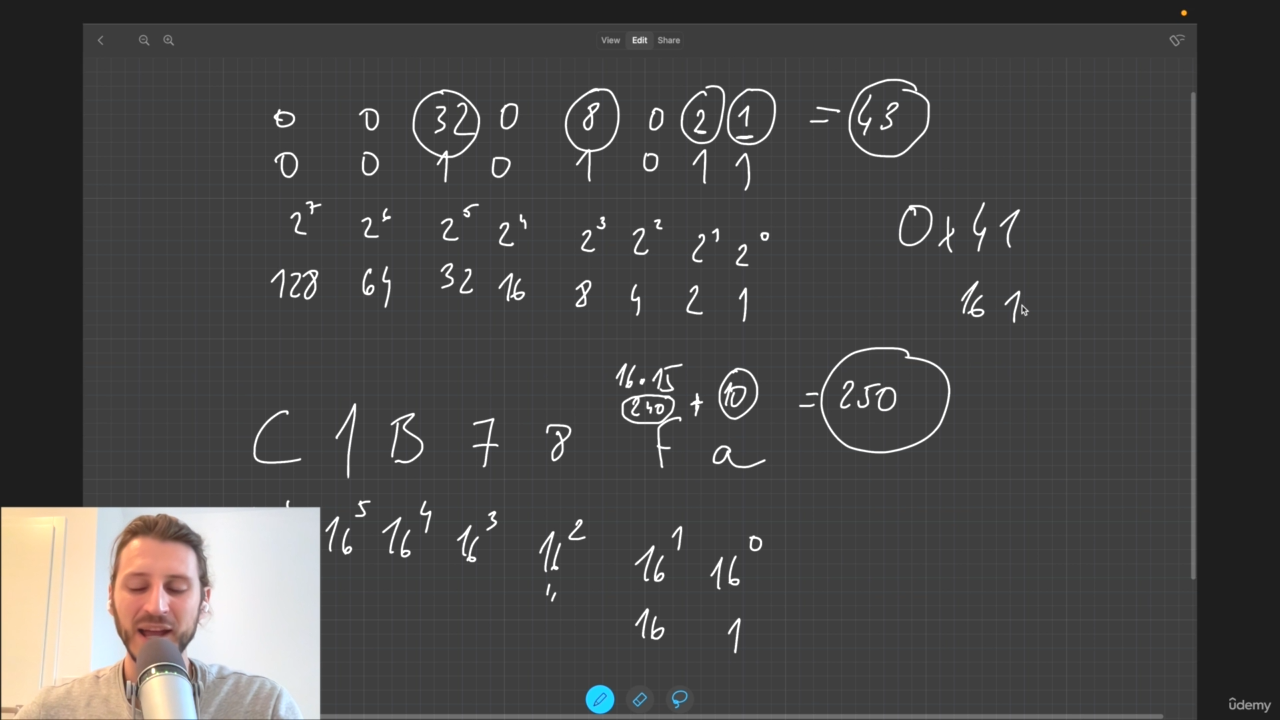 View Edit Share
0 0 32 0 8 0 2 1 = 43
0 0 1 0 1 0 1 1
2⁷ 2⁶ 2⁵ 2⁴ 2³ 2² 2¹ 2⁰
128 64 32 16 8 4 2 1
0x41
16 1
16·15
240 + 10 = 250
C 1 B 7 8 f a
16⁵ 16⁴ 16³ 16² 16¹ 16⁰
16 1
ûdemy